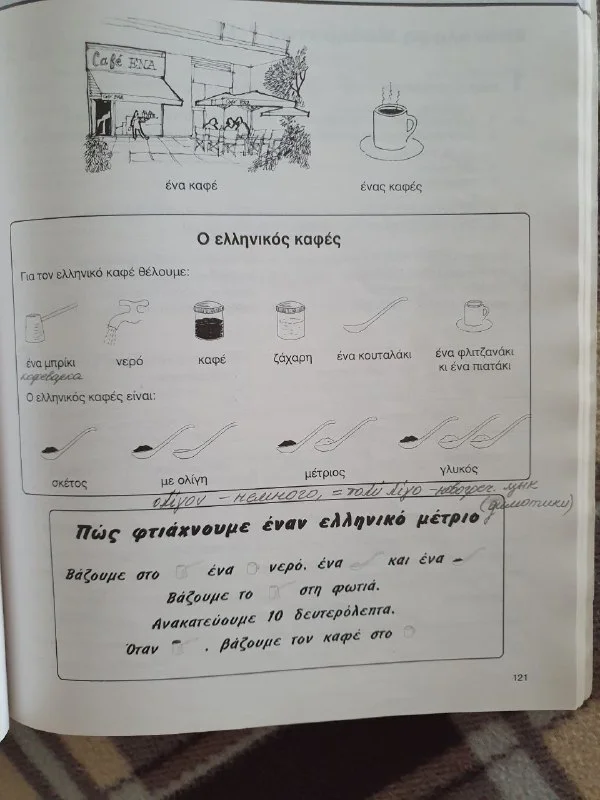 Café ΕΝΑ
ένα καφέ
ένας καφές
Ο ελληνικός καφές
Για τον ελληνικό καφέ θέλουμε:
ένα μπρίκι
νερό
καφέ
ζάχαρη
ένα κουταλάκι
ένα φλιτζανάκι
κι ένα πιατάκι
кофеварка
Ο ελληνικός καφές είναι:
σκέτος
με ολίγη
μέτριος
γλυκός
ολίγον – немного, = πολύ λίγο – новогреч. язык
(δημοτική)
Πώς φτιάχνουμε έναν ελληνικό μέτριο
Βάζουμε στο ένα νερό, ένα και ένα
Βάζουμε το στη φωτιά.
Ανακατεύουμε 10 δευτερόλεπτα.
Όταν , βάζουμε τον καφέ στο
121